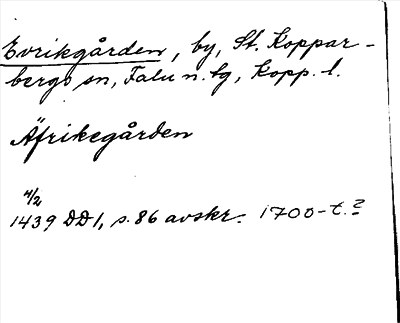 Evrikgården, by, St. Koppar-
bergs sn, Falu n. tg, Kopp. l.
Äfrikegården
4/2
1439 DD1, s. 86 avskr. 1700-t.?